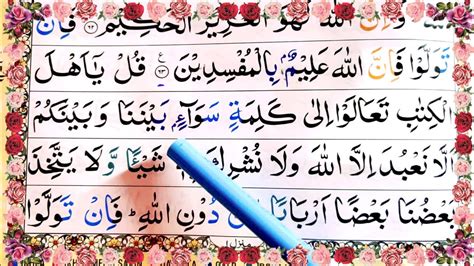 وَاِنَّ اللّٰهَ لَهُوَ الْعَزِيْزُ الْحَكِيْمُ ﴿۶۲﴾ فَاِنْ
تَوَلَّوْا فَاِنَّ اللّٰهَ عَلِيْمٌۢ بِالْمُفْسِدِيْنَ ﴿۶۳﴾ ع قُلْ يٰۤاَهْلَ
الْكِتٰبِ تَعَالَوْا اِلٰى كَلِمَةٍ سَوَآءٍۭ بَيْنَنَا وَ بَيْنَكُمْ
اَلَّا نَعْبُدَ اِلَّا اللّٰهَ وَلَا نُشْرِكَ شَيْـًٔا وَّلَا يَتَّخِذَ
بَعْضُنَا بَعْضًا اَرْبَابًا دُوْنِ اللّٰهِ ؕ فَاِنْ تَوَلَّوْا